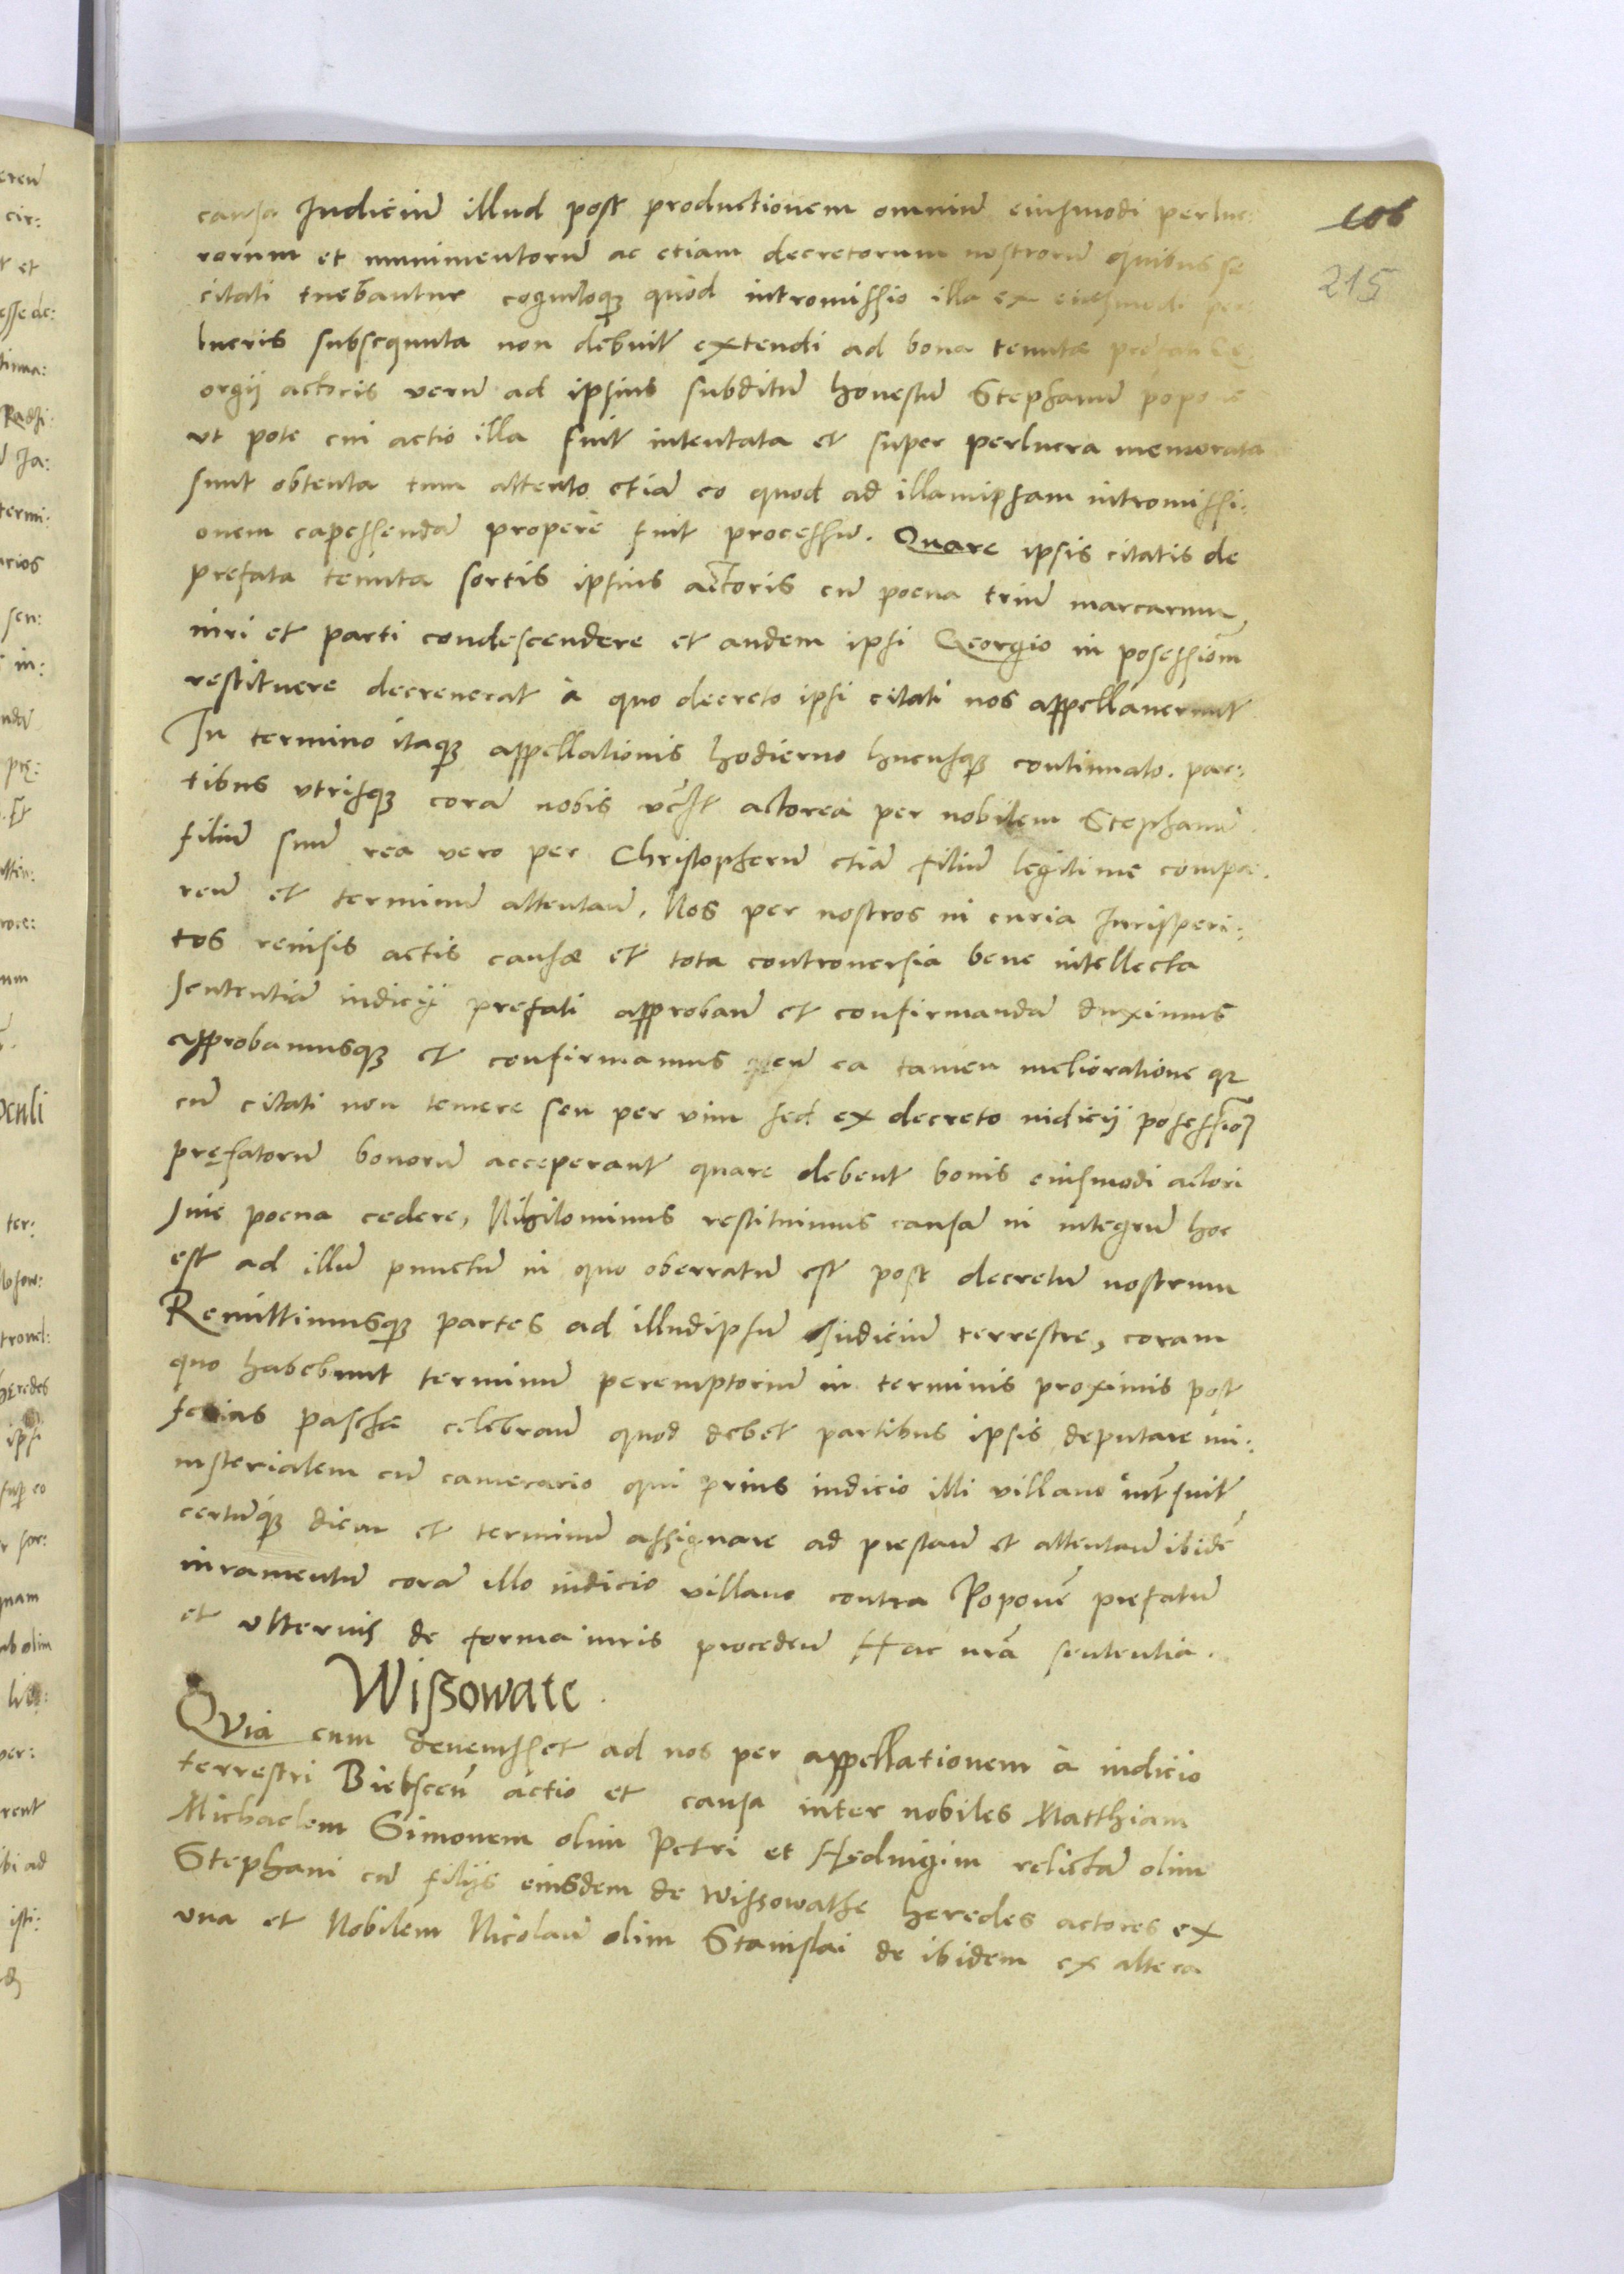 causa Iudiciũ illud post productionem omniũ eiusmodi perluc:
rorum et munimentorũ ac etiam decretorum nostrorũ quibus se
citati tuebantur cognitoq; quòd intromissio illa ex eiusmodi per:
lucris subsequuta non debuit extendi ad bona tenutæ prefati Ge:
orgij actoris verũ ad ipsius subditũ honestũ Stephanũ popone
vt pote cui actio illa fuit intentata et super perlucra memorata
sunt obtenta tum attento etiã eo quod ad illamipsam intromissi:
onem capessendã properè fuit processũ. Quare ipsis citatis de
prefata tenuta sortis ipsius actoris cũ poena triũ marcarum
iuri et parti condescendere et andem ipsi Georgio in posessiom̃
restituere decreuerat à quo decreto ipsi citati nos appellauerunt
In termino itaq; appellationis hodierno hucusq; continuato. par:
tibus vtrisq; corã nobis vcz̃t actoreà per nobilem Stephanũ
filiũ suũ rea vero per Christopherũ etiã filiũ legitime compa:
reñ et terminũ attentañ. Nos per nostros in curia Iurisperi:
tos reuisis actis causæ et tota controuersia bene intellecta
sententiã iudicij prefati approbañ et confirmandã duximus
approbamusq; et confirmamus cũ ea tamen melioratione q;
cũ citati non temere seu per vim sed ex decreto iudicij posessiõ
pręfatorũ bonorũ acceperant quare debent bonis eiusmodi actori
sine poena cedere, Nihilominus restituimus causã in integrũ hoc
est ad illũ punctũ in quo oberratũ est post decretũ nostrum
Remittimusq; partes ad illudipsũ Iudiciũ terrestre, coram
quo habebunt terminũ peremptoriũ in terminis proximis post
ferias paschæ celebrañ quod debet partibus ipsis deputare mi:
nisterialem cũ camerario qui prius iudicio illi villano int̃fuit
certũq; diem et terminũ assignare ad prestañ et attentañ ibidẽ
iuramentũ corã illo iudicio villano contra Poponẽ prefatũ
et vlterius de forma iuris procedeñ Hac nrã sententia.
Wissowate.
Quia cum deuenisset ad nos per appellationem à iudicio
terrestri Bielsceñ actio et causa inter nobiles Matthiam
Michaelem Simonem olim Petri et Hedwigim relictã olim
Stephani cũ filijs eiusdem de Wissowathe heredes actores ex
vna et Nobilem Nicolaũ olim Stanislai de ibidem ex altera
106
215